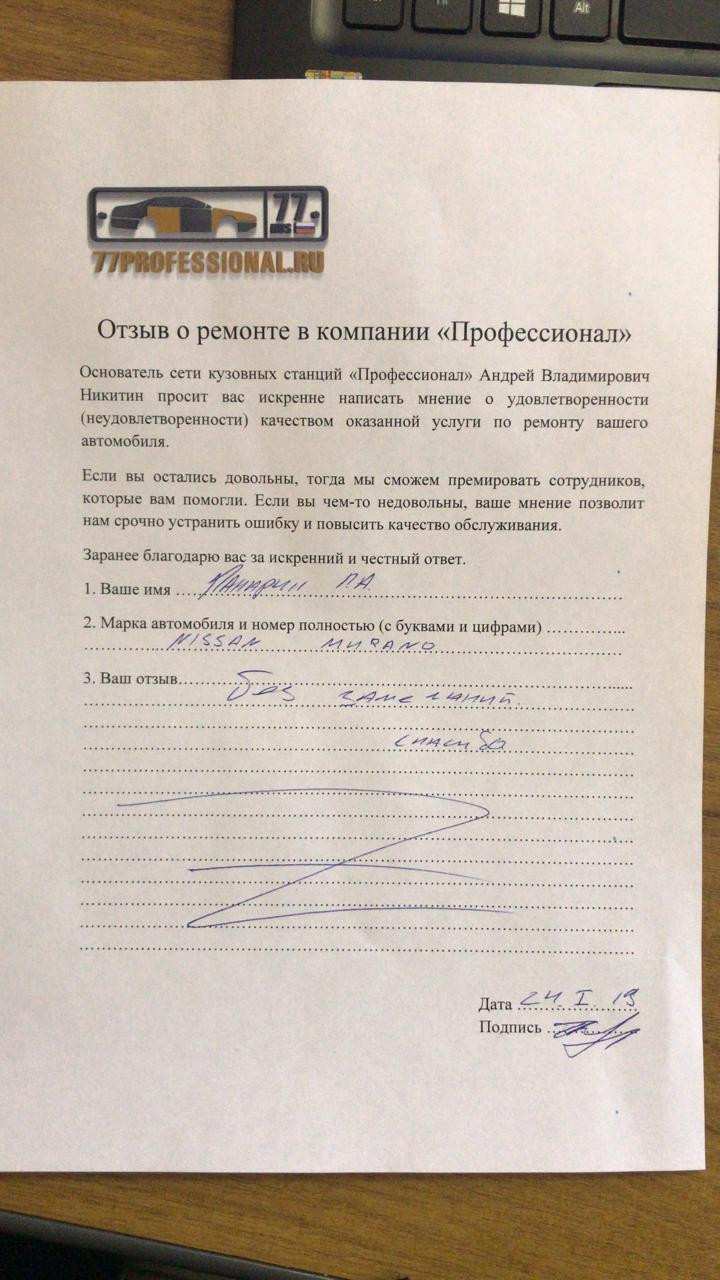 Alt
77
RUS
77PROFESSIONAL.RU
Отзыв о ремонте в компании «Профессионал»
Основатель сети кузовных станций «Профессионал» Андрей Владимирович
Никитин просит вас искренне написать мнение о удовлетворенности
(неудовлетворенности) качеством оказанной услуги по ремонту вашего
автомобиля.
Если вы остались довольны, тогда мы сможем премировать сотрудников,
которые вам помогли. Если вы чем-то недовольны, ваше мнение позволит
нам срочно устранить ошибку и повысить качество обслуживания.
Заранее благодарю вас за искренний и честный ответ.
1. Ваше имя
2. Марка автомобиля и номер полностью (с буквами и цифрами)
NISSAN МИРАNО
3. Ваш отзыв
без замечаний.
спасибо
Дата 24. I. 19
Подпись